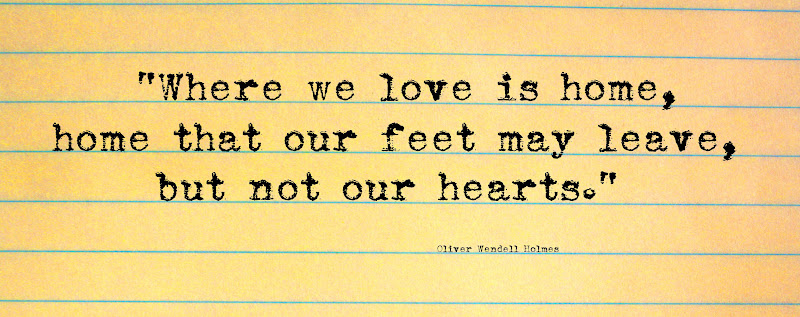 "Where we love is home,
home that our feet may leave,
but not our hearts."
Oliver Wendell Holmes